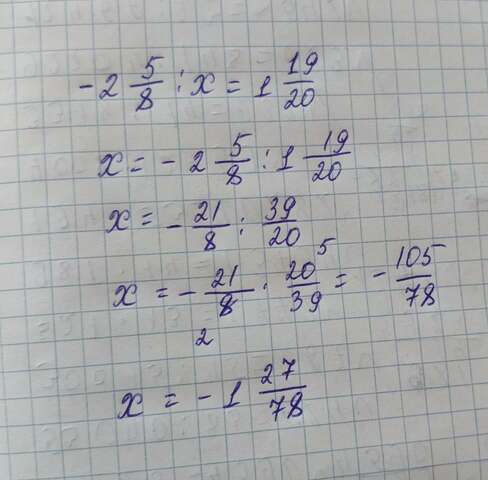 -2 5/8 : x = 1 19/20
x = -2 5/8 : 1 19/20
x = -21/8 : 39/20
x = -21/8 · 20/39 = -105/78
5
2
x = -1 27/78